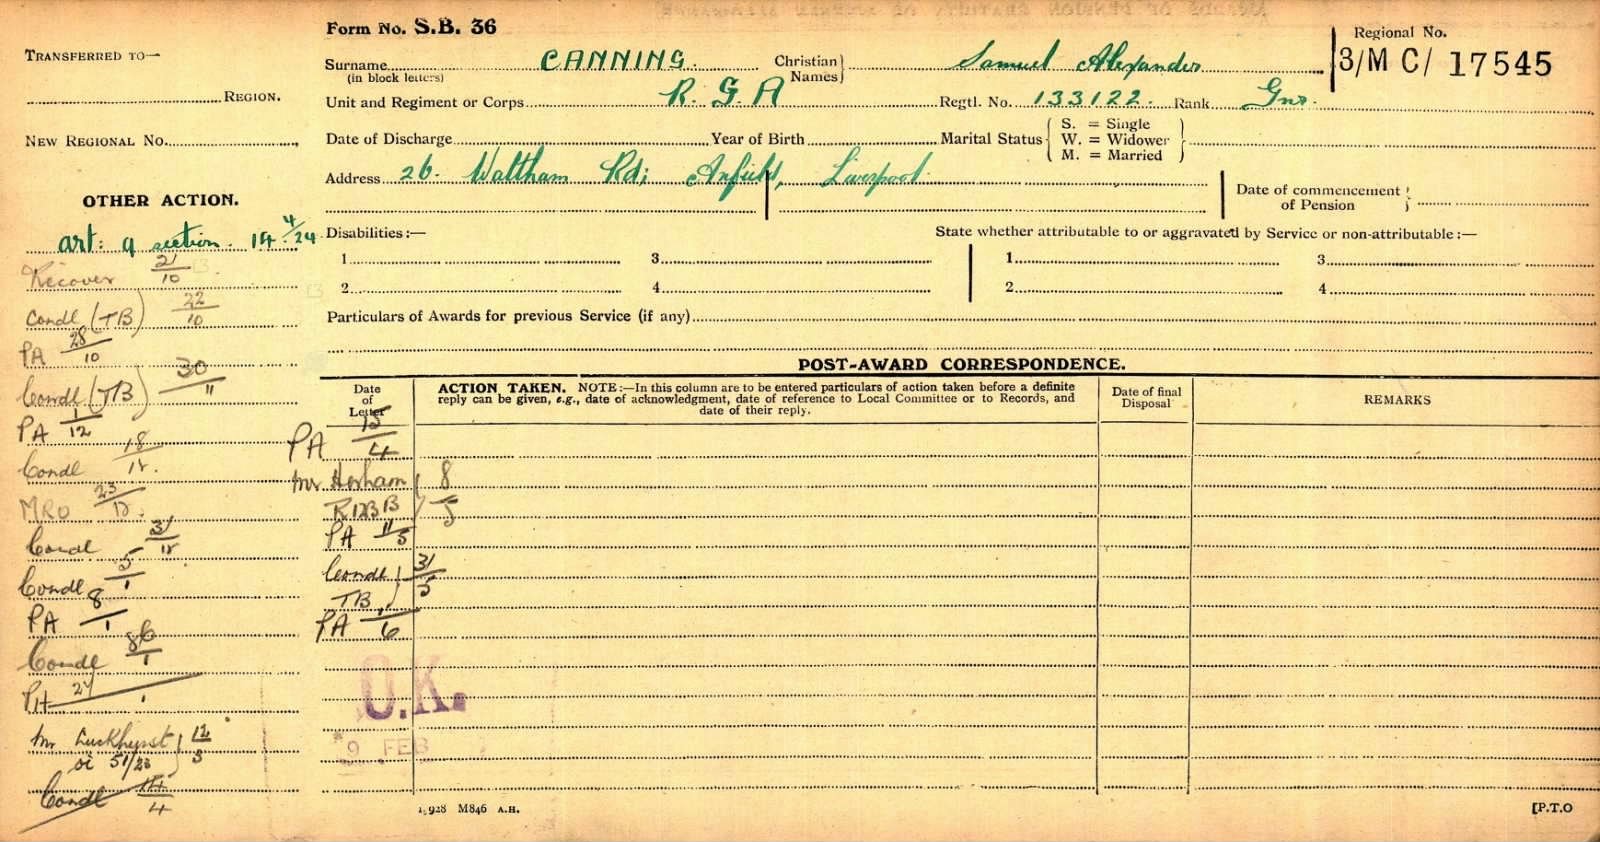 Form No. S.B. 36
TRANSFERRED TO—
REGION.
NEW REGIONAL No.
Surname CANNING. Christian Names Samuel Alexander
(in block letters)
Regional No.
3/MC/ 17545
Unit and Regiment or Corps R. G. A Regtl. No. 133122. Rank Gnr.
Date of Discharge Year of Birth Marital Status S. = Single
W. = Widower
M. = Married
Address 26. Waltham Rd; Anfield, Liverpool.
Date of commencement of Pension
Disabilities:— State whether attributable to or aggravated by Service or non-attributable:—
1 3 1 3
2 4 2 4
Particulars of Awards for previous Service (if any)
OTHER ACTION.
art: q section. 14 4/24
Recover 21/10
Condl (TB) 22/10
PA 28/10
Condl (TB) 30/11
PA 1/12
Condl 18/12.
MRO 23/12.
Condl 31/12
Condl 5/1
PA 8/1
Condl
PA
Mr Luckhurst 12/3
51/23
Condl
POST-AWARD CORRESPONDENCE.
Date of Letter
ACTION TAKEN. NOTE:—In this column are to be entered particulars of action taken before a definite
reply can be given, e.g., date of acknowledgment, date of reference to Local Committee or to Records, and
date of their reply.
Date of final Disposal
REMARKS
PA 15/4
Mr 8/5
PA 11/5
Condl TB 31/5
PA 1/6
O.K.
9 FEB
928 M846 A.H.
[P.T.O